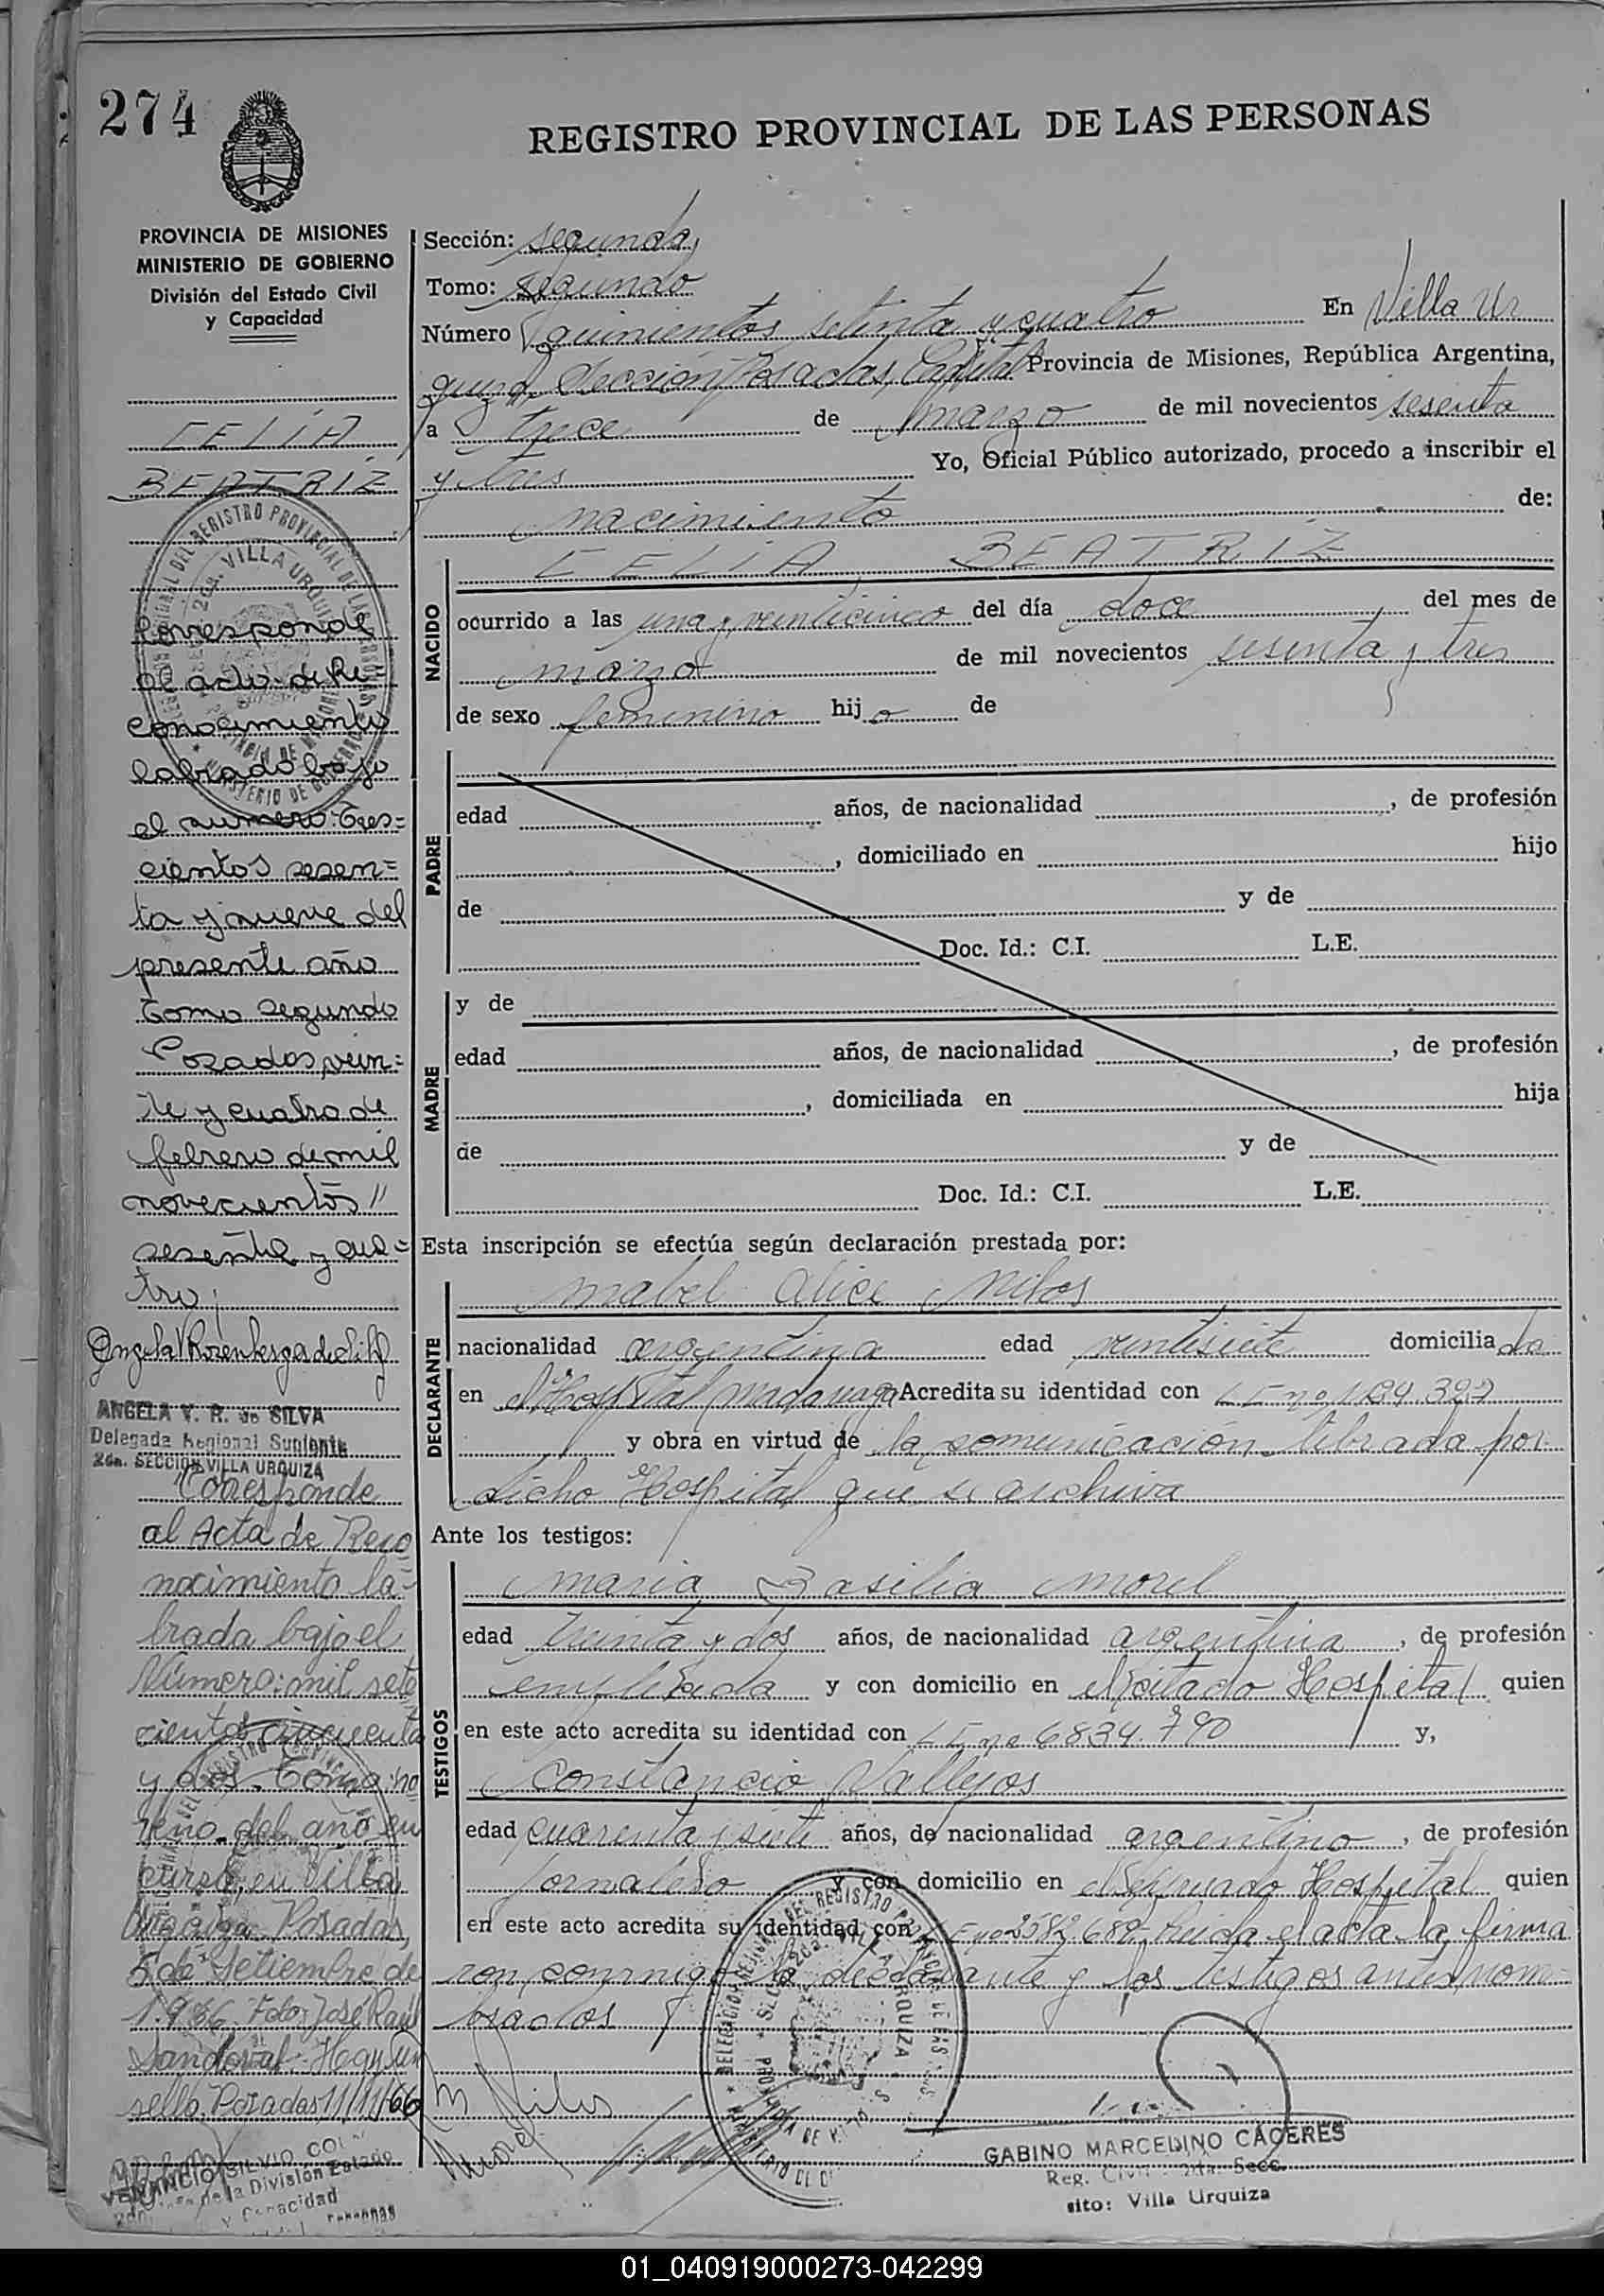 274
REGISTRO PROVINCIAL DE LAS PERSONAS
PROVINCIA DE MISIONES
MINISTERIO DE GOBIERNO
División del Estado Civil
y Capacidad
CELIA
BEATRIZ
Corresponde
al acto de Re-
conocimiento
labrado bajo
el numero: Tres=
cientos sesen=
ta y nueve del
presente año
Tomo segundo
Posadas, vein=
te y cuatro de
febrero de mil
novecientos"
sesenta y cua=
tro;
ANGELA V. R. de SILVA
Delegada Regional Suplente
2da. SECCION VILLA URQUIZA
"Corresponde
al Acta de Reco
nocimiento la-
brada bajo el
Número: mil sete
cientos cincuenta
y dos. Tomo: no
veno del año en
curso, en Villa
Urquiza Posadas,
5 de Setiembre de
1.966. Fdo: José Raúl
Sandoval. Hay un
sello. Posadas 11/11/66
VENANCIO SILVIO
de la División Estado
y Capacidad
Sección: segunda,
Tomo: segundo
Número quinientos setenta y cuatro En Villa Ur
quiza, Sección Posadas, Capital Provincia de Misiones, República Argentina,
a trece de marzo de mil novecientos sesenta
y tres Yo, Oficial Público autorizado, procedo a inscribir el
nacimiento de:
CELIA BEATRIZ
NACIDO
ocurrido a las una y veinticinco del día doce del mes de
marzo de mil novecientos sesenta y tres
de sexo femenino hijo de
PADRE
edad años, de nacionalidad , de profesión
, domiciliado en hijo
de y de
Doc. Id.: C.I. L.E.
MADRE
y de
edad años, de nacionalidad , de profesión
, domiciliada en hija
de y de
Doc. Id.: C.I. L.E.
Esta inscripción se efectúa según declaración prestada por:
DECLARANTE
Mabel Alice
nacionalidad argentina edad veintisiete domiciliada
en el Hospital Madariaga Acredita su identidad con
y obra en virtud de la comunicación librada por
dicho Hospital que se archiva
Ante los testigos:
TESTIGOS
Maria Basilia Morel
edad treinta y dos años, de nacionalidad argentina, de profesión
empleada y con domicilio en el citado Hospital quien
en este acto acredita su identidad con L E no 6834.790 y,
Constancio Vallejos
edad cuarenta y siete años, de nacionalidad argentino, de profesión
Jornalero y con domicilio en el Hospital quien
en este acto acredita su identidad con L E no 2582.689 Leida el acta la firma
ron conmigo la declarante y los testigos antes nom-
brados
GABINO MARCELINO CACERES
Reg. Civil 2da. Secc.
sito: Villa Urquiza
01_040919000273-042299